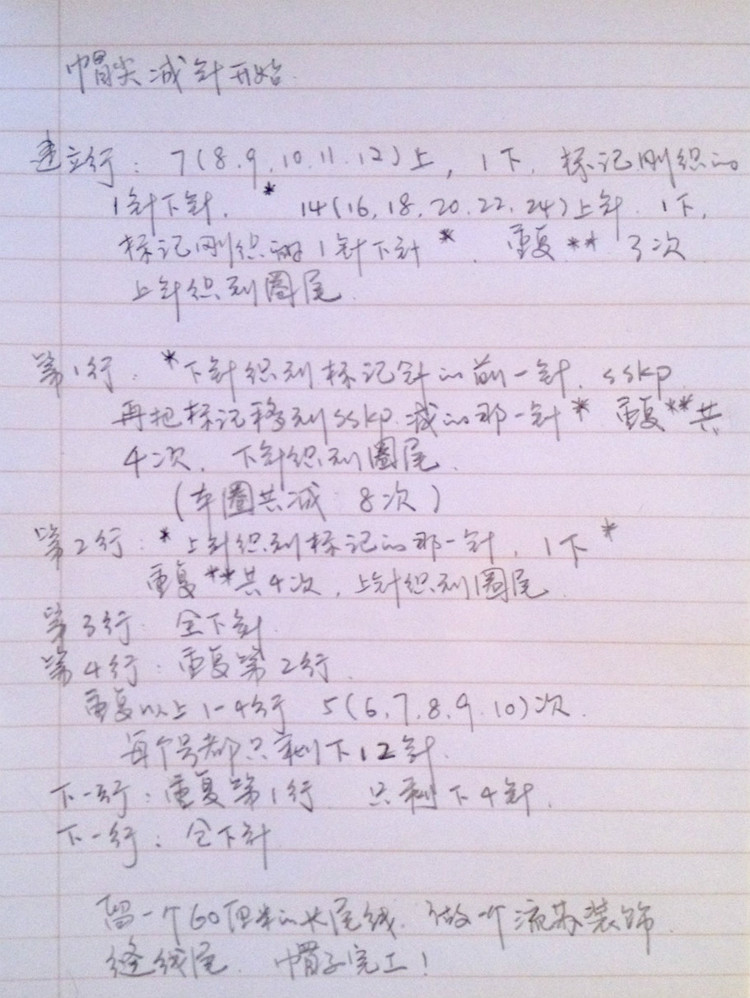 帽尖减针开始.
建立行: 7(8.9.10.11.12)上, 1下. 标记刚织的
1针下针. * 14(16.18.20.22.24)上针. 1下,
标记刚织的1针下针*. 重复** 3次
上针织到圈尾.
第1行. *下针织到标记针的前一针. sskp
再把标记移到sskp减的那一针* 重复**共
4次. 下针织到圈尾.
(本圈共减 8次)
第2行: *上针织到标记的那一针. 1下*
重复**共4次, 上针织到圈尾
第3行. 全下针.
第4行: 重复第2行.
重复以上1-4行 5(6.7.8.9.10)次.
每个号都只剩下12针.
下一行: 重复第1行 只剩下4针.
下一行: 全下针
留一个60厘米的长尾线. 做个流苏装饰.
缝线尾. 帽子完工!